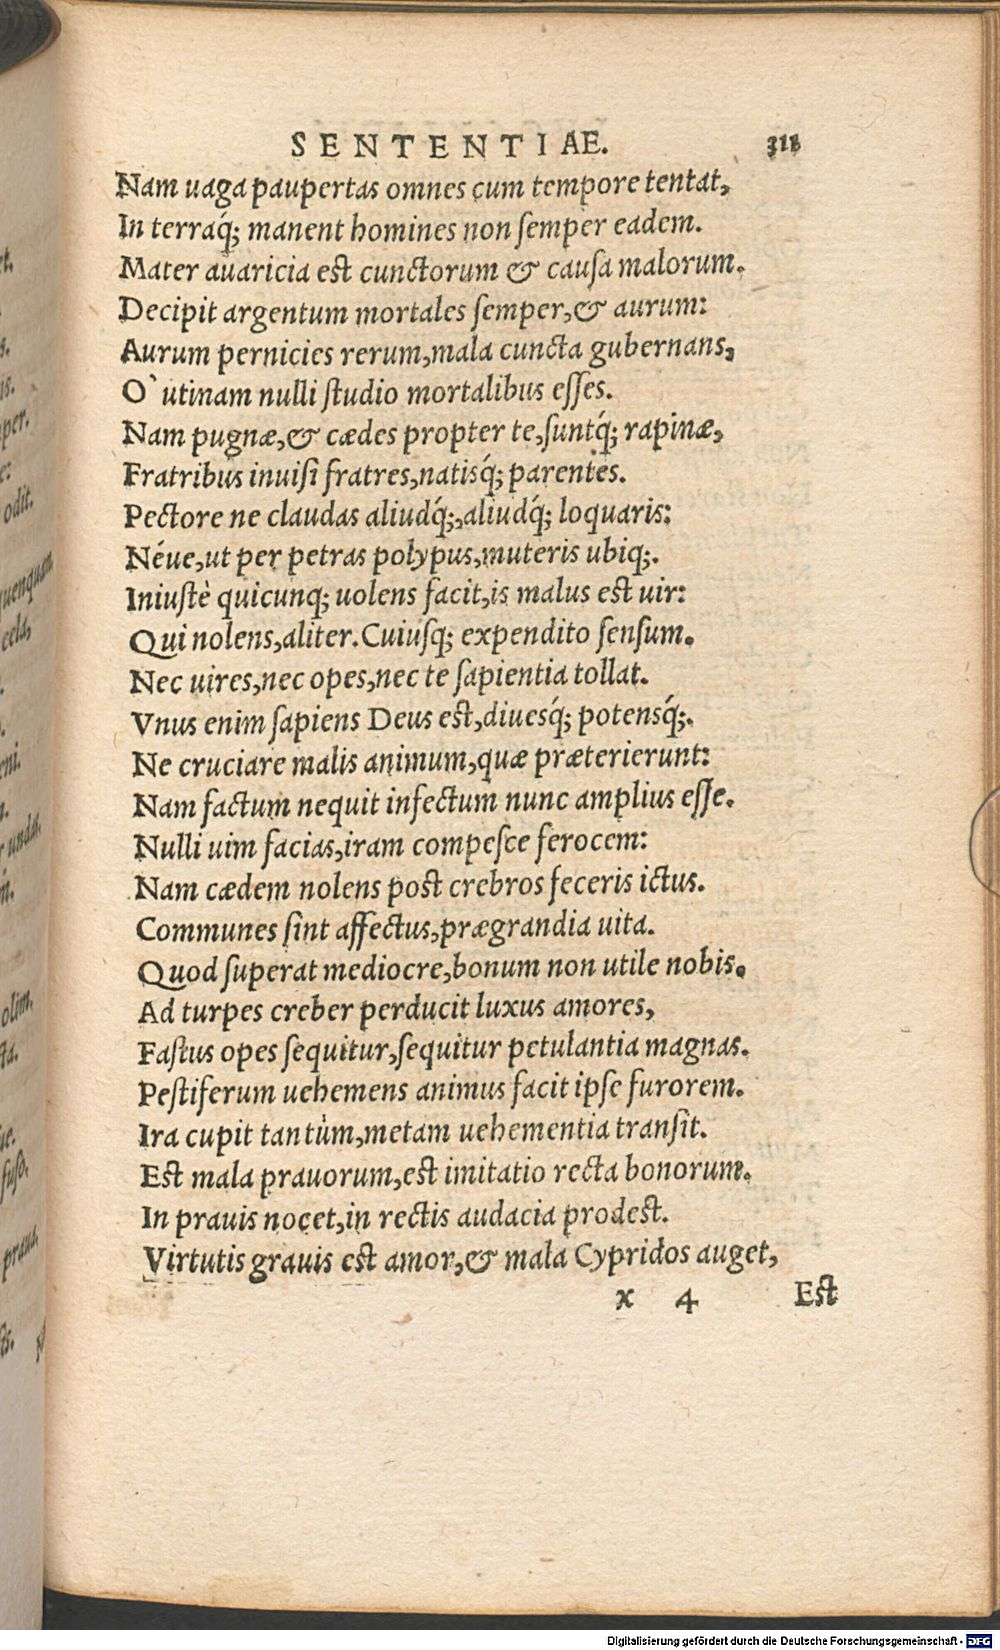 SENTENTIAE. 311
Nam uaga paupertas omnes cum tempore tentat,
In terraq́; manent homines non ſemper eadem.
Mater auaricia est cunctorum & cauſa malorum.
Decipit argentum mortales ſemper,& aurum:
Aurum pernicies rerum,mala cuncta gubernans,
O` utinam nulli ſtudio mortalibus eſſes.
Nam pugnæ,& cædes propter te,ſuntq́; rapinæ,
Fratribus inuiſi fratres,natisq́; parentes.
Pectore ne claudas aliudq́;,aliudq́; loquaris:
Néue,ut per petras polypus,muteris ubiq;.
Iniuſtè quicunq; uolens facit,is malus est uir:
Qui nolens,aliter.Cuiuſq; expendito ſenſum.
Nec uires,nec opes,nec te ſapientia tollat.
Vnus enim ſapiens Deus est,diuesq́; potensq́;.
Ne cruciare malis animum,quæ præterierunt:
Nam factum nequit infectum nunc amplius eſſe.
Nulli uim facias,iram compeſce ferocem:
Nam cædem nolens post crebros feceris ictus.
Communes ſint affectus,prægrandia uita.
Quod ſuperat mediocre,bonum non utile nobis.
Ad turpes creber perducit luxus amores,
Faſtus opes ſequitur,ſequitur petulantia magnas.
Peſtiferum uehemens animus facit ipſe furorem.
Ira cupit tantùm,metam uehementia tranſit.
Est mala prauorum,est imitatio recta bonorum.
In prauis nocet,in rectis audacia prodest.
Virtutis grauis est amor,& mala Cypridos auget,
x 4 Est
et.
s.
us.
per.
e:
odit.
uenquam
celã,
eni.
undat.
olim.
ſta.
ue.
fuſo.
praua.
ſts.
Digitalisierung gefördert durch die Deutsche Forschungsgemeinschaft - DFG